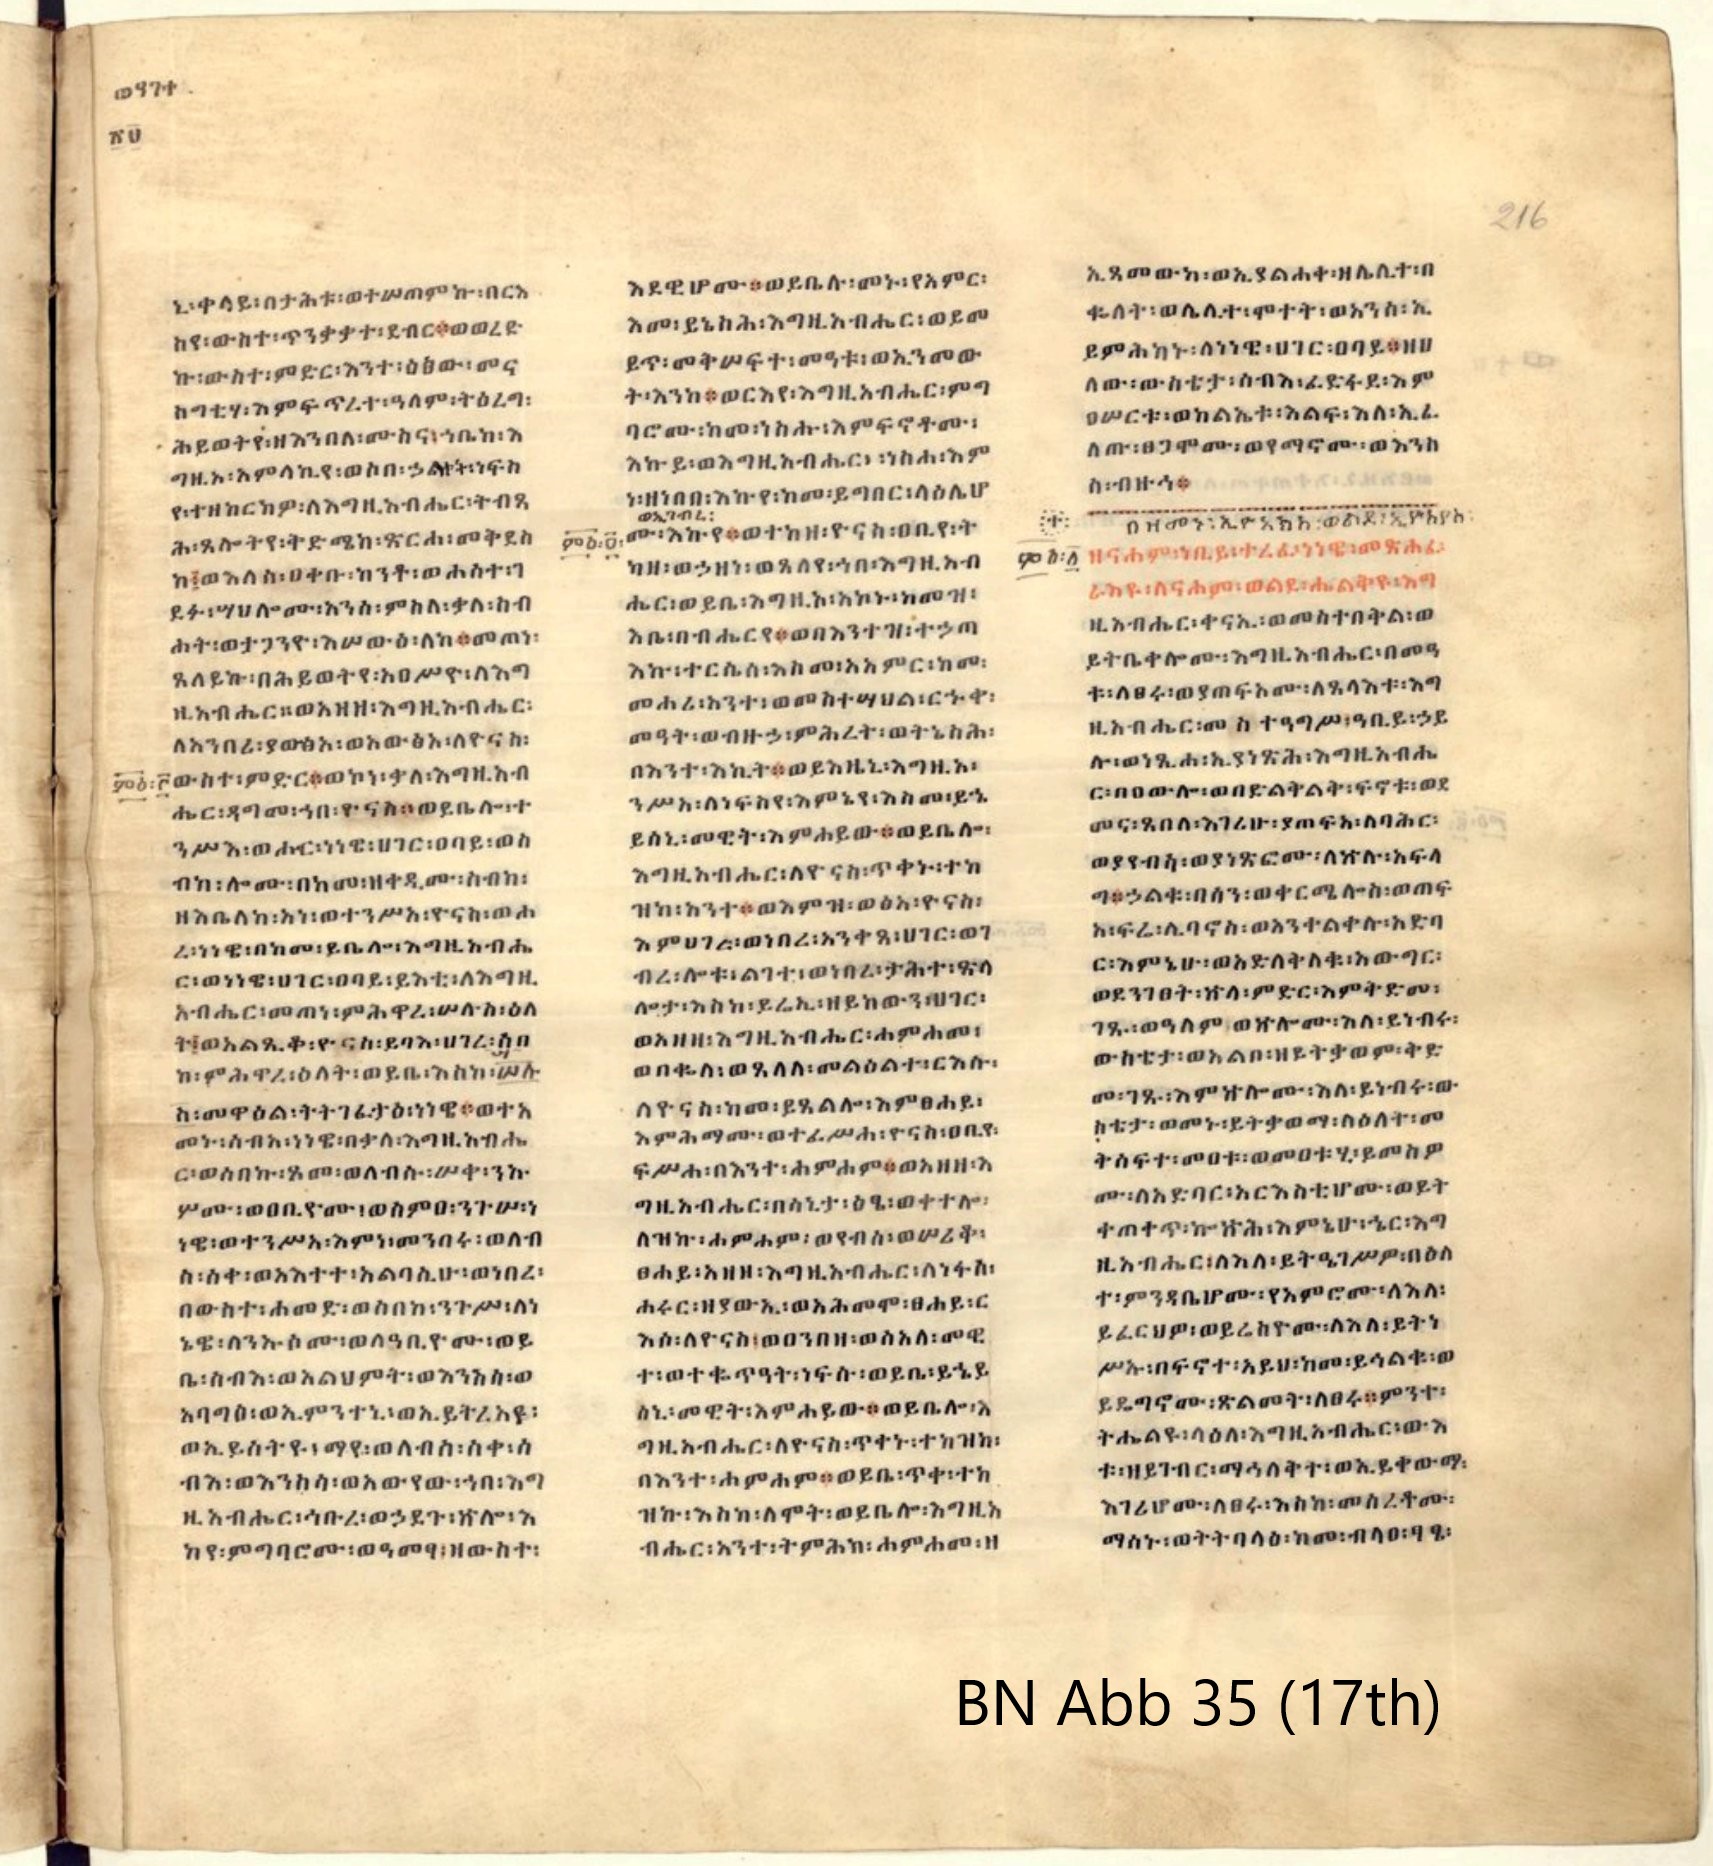 ወዓገተ
216
ኒ፡ቀላይ፡በታሕቱ፡ወተሠጠምኩ፡በርእ
ስየ፡ውስተ፡ጥንቃቃተ፡ደብር፨ወወረድ
ኩ፡ውስተ፡ምድር፡እንተ፡ዕፀው፡መና
ስግቲሃ፡እምፍጥረተ፡ዓለም፡ትዕረግ፡
ሕይወትየ፡ዘእንበለ፡ሙስና፡ኀቤከ፡እ
ግዚእ፡አምላኪየ፡ወሶበ፡ኃልቀት፡ነፍስ
የ፡ተዘከርክዎ፡ለእግዚአብሔር፡ትብጻ
ሕ፡ጸሎትየ፡ቅድሜከ፡ጽርሐ፡መቅደስ
ከ፨ወእለሰ፡ዐቀቡ፡ከንቶ፡ወሐሰተ፡ገ
ደፉ፡ሣህሎሙ፡አንሰ፡ምስለ፡ቃለ፡ስብ
ሐት፡ወተጋንዮ፡እሠውዕ፡ለከ፨መጠነ፡
ጸለይኩ፡በሕይወትየ፡አዐሥዮ፡ለእግ
ዚአብሔር።ወአዘዘ፡እግዚአብሔር፡
ለአንበሪ፡ያውፅአ፡ወአውፅአ፡ለዮናስ፡
ውስተ፡ምድር፨ወኮነ፡ቃለ፡እግዚአብ
ሔር፡ዳግመ፡ኀበ፡ዮናስ፨ወይቤሎ፡ተ
ንሥእ፡ወሑር፡ነነዌ፡ሀገር፡ዐባይ፡ወስ
ብክ፡ሎሙ፡በከመ፡ዘቀዲሙ፡ስብከ፡
ዘእቤለከ፡አነ፡ወተንሥአ፡ዮናስ፡ወሖ
ረ፡ነነዌ፡በከመ፡ይቤሎ፡እግዚአብሔ
ር፡ወነነዌ፡ሀገር፡ዐባይ፡ይእቲ፡ለእግዚ
አብሔር፡መጠነ፡ምሕዋረ፡ሠሉስ፡ዕለ
ት፨ወአልጺቆ፡ዮናስ፡ይባእ፡ሀገረ፡ሰበ
ከ፡ምሕዋረ፡ዕለት፡ወይቤ፡እስከ፡ሠሉ
ስ፡መዋዕል፡ትትገፈታዕ፡ነነዌ፨ወተአ
መኑ፡ሰብአ፡ነነዌ፡በቃለ፡እግዚአብሔ
ር፡ወሰበኩ፡ጾመ፡ወለብሱ፡ሠቀ፡ንኡ
ሦሙ፡ወዐቢዮሙ፡ወሰምዐ፡ንጉሠ፡ነ
ነዌ፡ወተንሥአ፡እምነ፡መንበሩ፡ወለብ
ሰ፡ሰቀ፡ወአእተተ፡አልባሲሁ፡ወነበረ፡
በውስተ፡ሐመድ፡ወሰበከ፡ንጉሥ፡ለነ
ኔዌ፡ለንኡሶሙ፡ወለዓቢዮሙ፡ወይ
ቤ፡ሰብእ፡ወአልህምት፡ወእንስሳ፡ወ
አባግዕ፡ወኢምንተኒ፡ወኢይትረአዩ፡
ወኢይስትዩ፡ማየ፡ወለብሰ፡ሰቀ፡ሰ
ብእ፡ወእንስሳ፡ወአውየው፡ኀበ፡እግ
ዚአብሔር፡ኅቡረ፡ወኃደጉ፡ኵሎ፡እ
ከየ፡ምግባሮሙ፡ወዓመፃ፡ዘውስተ፡
እደዊሆሙ፨ወይቤሉ፡መኑ፡የአምር፡
እመ፡ይኔስሕ፡እግዚአብሔር፡ወይመ
ይጥ፡መቅሠፍተ፡መዓቱ፡ወኢንመው
ት፡እንከ፨ወርእየ፡እግዚአብሔር፡ምግ
ባሮሙ፡ከመ፡ነስሑ፡እምፍኖቶሙ፡
እኩይ፡ወእግዚአብሔር፡ነስሐ፡እም
ነ፡ዘነበበ፡እኩየ፡ከመ፡ይግበር፡ላዕሌሆ
ወኢገብረ፡
ሙ፡እኩየ፨ወተከዘ፡ዮናስ፡ዐቢየ፡ት
ካዘ፡ወኃዘነ፡ወጸለየ፡ኀበ፡እግዚአብ
ሔር፡ወይቤ፡እግዚእ፡አኮኑ፡ከመዝ፡
እቤ፡በብሔርየ፨ወበእንተዝ፡ተኃጣ
እኩ፡ተርሴስ፡እስመ፡አአምር፡ከመ፡
መሐሪ፡አንተ፡ወመስተሣህል፡ርኁቀ፡
መዓት፡ወብዙኃ፡ምሕረት፡ወትኔስሕ፡
በእንተ፡እኪት፨ወይእዜኒ፡እግዚእ፡
ንሥአ፡ለነፍስየ፡እምኔየ፡እስመ፡ይኄ
ይሰኒ፡መዊት፡እምሐይው፨ወይቤሎ፡
እግዚአብሔር፡ለዮናስ፡ጥቀኑ፡ተከ
ዝከ፡አንተ፨ወእምዝ፡ወፅአ፡ዮናስ፡
እምሀገረ፡ወነበረ፡አንቀጸ፡ሀገር፡ወገ
ብረ፡ሎቱ፡ልገተ፡ወነበረ፡ታሕተ፡ጽላ
ሎታ፡እስከ፡ይሬኢ፡ዘይከውን፡ሀገር፡
ወአዘዘ፡እግዚአብሔር፡ሐምሐመ፡
ወበቈለ፡ወጸለለ፡መልዕልተ፡ርእሱ፡
ለዮናስ፡ከመ፡ይጸልሎ፡እምፀሐይ፡
እምሕማሙ፡ወተፈሥሐ፡ዮናስ፡ዐቢየ፡
ፍሥሐ፡በእንተ፡ሐምሐም፨ወአዘዘ፡እ
ግዚአብሔር፡በሳኒታ፡ዕፄ፡ወቀተሎ፡
ለዝኩ፡ሐምሐም፡ወየብሰ፡ወሠሪቆ፡
ፀሐይ፡አዘዘ፡እግዚአብሔር፡ለነፋስ፡
ሐሩር፡ዘያውኢ፡ወአሕመሞ፡ፀሐይ፡ር
እሶ፡ለዮናስ፡ወዐንበዘ፡ወሰአለ፡መዊ
ተ፡ወተቈጥዓት፡ነፍሱ፡ወይቤ፡ይኄይ
ሰኒ፡መዊት፡እምሐይው፨ወይቤሎ፡እ
ግዚአብሔር፡ለዮናስ፡ጥቀኑ፡ተከዝከ፡
በእንተ፡ሐምሐም፨ወይቤ፡ጥቀ፡ተከ
ዝኩ፡እስከ፡ለሞት፡ወይቤሎ፡እግዚአ
ብሔር፡አንተ፡ትምሕክ፡ሐምሐመ፡ዘ
ኢጻመውከ፡ወኢያልሐቀ፡ዘሌሊተ፡በ
ቈለት፡ወሌሊተ፡ሞተት፡ወአንሰ፡ኢ
ይምሕክኑ፡ለነነዌ፡ሀገር፡ዐባይ፨ዘሀ
ለው፡ውስቴታ፡ሰብእ፡ፈድፋደ፡እም
ዐሠርቱ፡ወክልኤቱ፡እልፍ፡እለ፡ኢፈ
ለጡ፡ፀጋሞሙ፡ወየማኖሙ፡ወእንስ
ሳ፡ብዙኅ፨
ዘናሖም፡ነቢይ፡ተረፈ፡ነነዌ፡መጽሐፈ፡
ራእዩ፡ለናሖም፡ወልደ፡ሔልቅዩ፡እግ
ዚአብሔር፡ቀናኢ፡ወመስተበቅል፡ወ
ይትቤቀሎሙ፡እግዚአብሔር፡በመዓ
ቱ፡ለፀሩ፡ወያጠፍኦሙ፡ለጸላእቱ፡እግ
ዚአብሔር፡መስተዓግሥ፡ዓቢይ፡ኃይ
ሉ፡ወነጺሐ፡ኢያነጽሕ፡እግዚአብሔ
ር፡በዐውሎ፡ወበድልቅልቅ፡ፍኖቱ፡ወደ
መና፡ጸበለ፡እገሪሁ፡ያጠፍኣ፡ለባሕር፡
ወያየብሳ፡ወያነጽፎሙ፡ለኵሉ፡አፍላ
ግ፨ኃልቁ፡በሰን፡ወቀርሜሎስ፡ወጠፍ
አ፡ፍሬ፡ሊባኖስ፡ወአንተልቀሉ፡አድባ
ር፡እምኔሁ፡ወአድለቅለቁ፡አውግር፡
ወደንገፀት፡ኵላ፡ምድር፡እምቅድመ፡
ገጹ፡ወዓለም፡ወኵሎሙ፡እለ፡ይነብሩ፡
ውስቴታ፡ወአልቦ፡ዘይትቃወም፡ቅድ
መ፡ገጹ፡እምኵሎሙ፡እለ፡ይነብሩ፡ው
ስቴታ፡ወመኑ፡ይትቃወማ፡ለዕለት፡መ
ቅሰፍተ፡መዐቱ፡ወመዐቱሂ፡ይመስዎ
ሙ፡ለአድባር፡አርእስቲሆሙ፡ወይት
ቀጠቀጥ፡ኰኵሕ፡እምኔሁ፡ኄር፡እግ
ዚአብሔር፡ለእለ፡ይትዔገሥዎ፡በዕለ
ተ፡ምንዳቤሆሙ፡የአምሮሙ፡ለእለ፡
ይፈርህዎ፡ወይሬስዮሙ፡ለእለ፡ይትነ
ሥኡ፡በፍኖተ፡አይህ፡ከመ፡ይኅልቁ፡ወ
ይዴግኖሙ፡ጽልመት፡ለፀሩ፨ምንተ፡
ትሔልዩ፡ላዕለ፡እግዚአብሔር፡ውእ
ቱ፡ዘይገብር፡ማኅለቅት፡ወኢይቀውማ፡
እገሪሆሙ፡ለፀሩ፡እስከ፡መሰረቶሙ፡
ማሰኑ፡ወትትባላዕ፡ከመ፡ብላዐ፡ፃፄ፡
BN Abb 35 (17th)